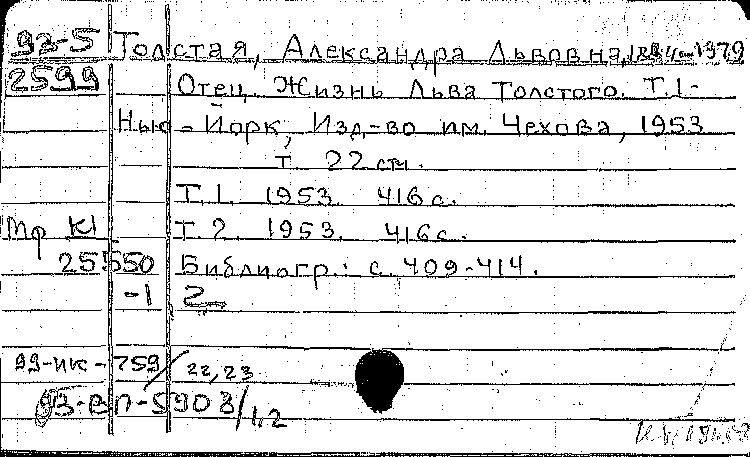 93-5 Толстая, Александра Львовна, 1884-1979
2599 Отец. Жизнь Льва Толстого. Т. 1-
Нью-Йорк, Изд-во им. Чехова, 1953
т 22 см.
Т. 1. 1953. 416 с.
Мф К1 Т. 2. 1953. 416 с.
25550 Библиогр.: с. 409-414.
-1 2
99-ик-759/22,23
93-ВП-5903/1,2